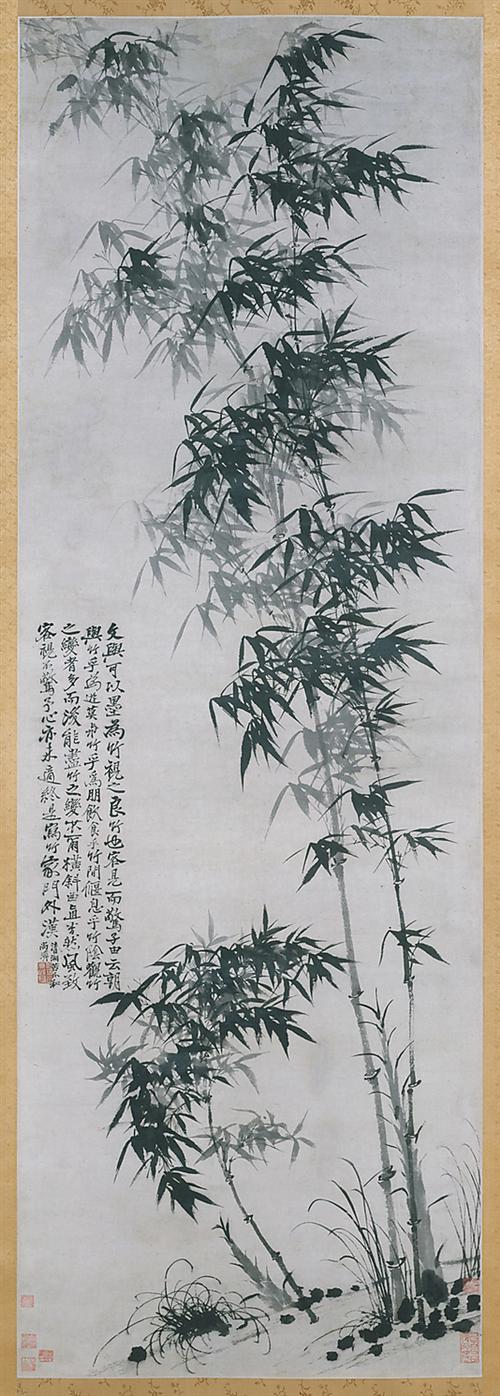 文與可以墨為竹視之良竹也客見而驚子由云朝
與竹乎為遊莫與竹乎為朋飲食乎竹間偃息乎竹陰觀竹
之變者多而後能盡竹之變橫斜曲直風致
客視不驚予心亦未適終是寫竹家門外漢
清湘苦瓜和
尚濟